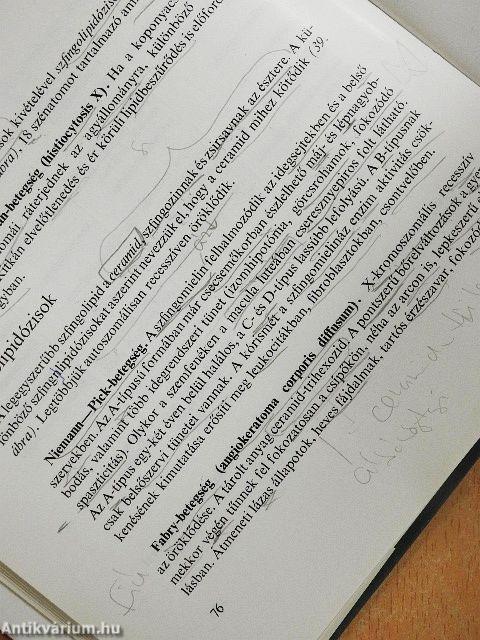 sok kivételével szfingolipidózis
ábra). 18 szénatomot tartalmazó
(histiocytosis X). Ha a koponyac
ráterjednek az agyállományra, különböző
elvelőtlenedés és ér körüli lipidbeszűrődés is előfor
lipidózisok
A legegyszerűbb szfingolipit a ceramid, szfingozinnak és zsírsavnak az észtere. A kü-
lönböző szfingolipidózisokat aszerint nevezzük el, hogy a ceramid mihez kötődik (39.
ábra). Legtöbbjük autoszomálisan recesszíven öröklődik.
Niemann—Pick-betegség. A szfingomielin felhalmozódik az idegsejtekben és a belső
szervekben. Az A-típusú formában már csecsemőkorban észlelhető máj- és lépnagyob-
bodás, valamint több idegrendszeri tünet (izomhipotónia, görcsrohamok, fokozódó
spaszticitás). Olykor a szemfenéken a macula lutea cseresznyepiros folt látható.
Az A-típus egy-két éven belül halálos, a C- és D-típus lassúbb lefolyású. A B-típusnak
csak belsőszervi tünetei vannak. A kórismét a szfingomielináz enzim aktivitás csök-
kenésének kimutatása erősíti meg leukocitákban, fibroblasztokban, csontvelőben.
Fabry-betegség (angiokeratoma corporis diffusum). X-kromoszomális recesszív
az öröklődése. A tárolt anyag ceramid-trihexozid. A pontszerű bőrelváltozások a gyer
mekkor végén tűnnek fel fokozatosan a csípőkön, néha az arcon is, lepkeszerű
lásban. Átmeneti lázas állapotok, heves fájdalmak, tartós érzészavar, fokozód
76
Antikvárium.hu